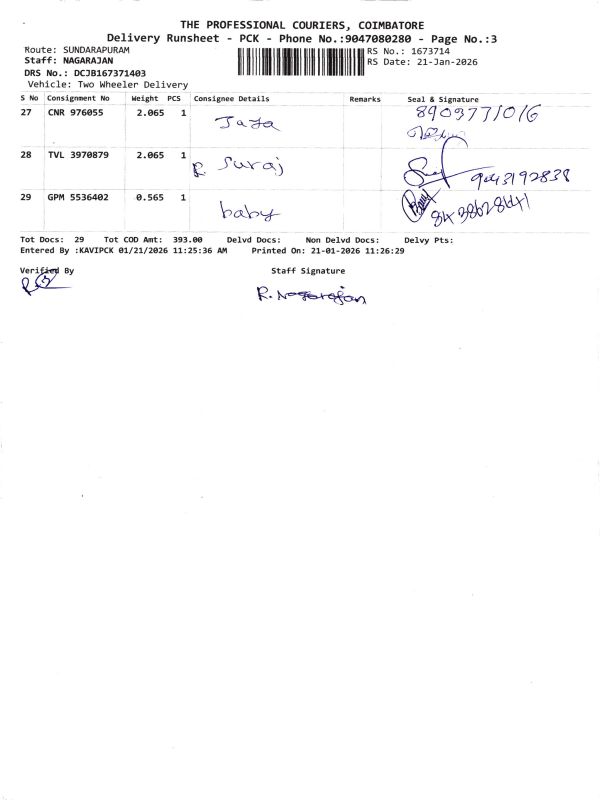 THE PROFESSIONAL COURIERS, COIMBATORE
Delivery Runsheet - PCK - Phone No.:9047080280 - Page No.:3
Route: SUNDARAPURAM
RS No.: 1673714
Staff: NAGARAJAN
RS Date: 21-Jan-2026
DRS No.: DCJB167371403
Vehicle: Two Wheeler Delivery
S No Consignment No Weight PCS Consignee Details Remarks Seal & Signature
27 CNR 976055 2.065 1 Jaya 8903771016
28 TVL 3970879 2.065 1 R Suraj 9043192838
29 GPM 5536402 0.565 1 baby
Tot Docs: 29 Tot COD Amt: 393.00 Delvd Docs: Non Delvd Docs: Delvy Pts:
Entered By :KAVIPCK 01/21/2026 11:25:36 AM Printed On: 21-01-2026 11:26:29
Verified By Staff Signature
R. Nagarajan